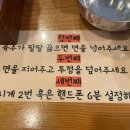 첫번째
육수가 팔팔 끓으면 면을 넣어주세요
두번째
면을 저어주고 뚜껑을 덮어주세요
세번째
2번 혹은 핸드폰 6분 설정해